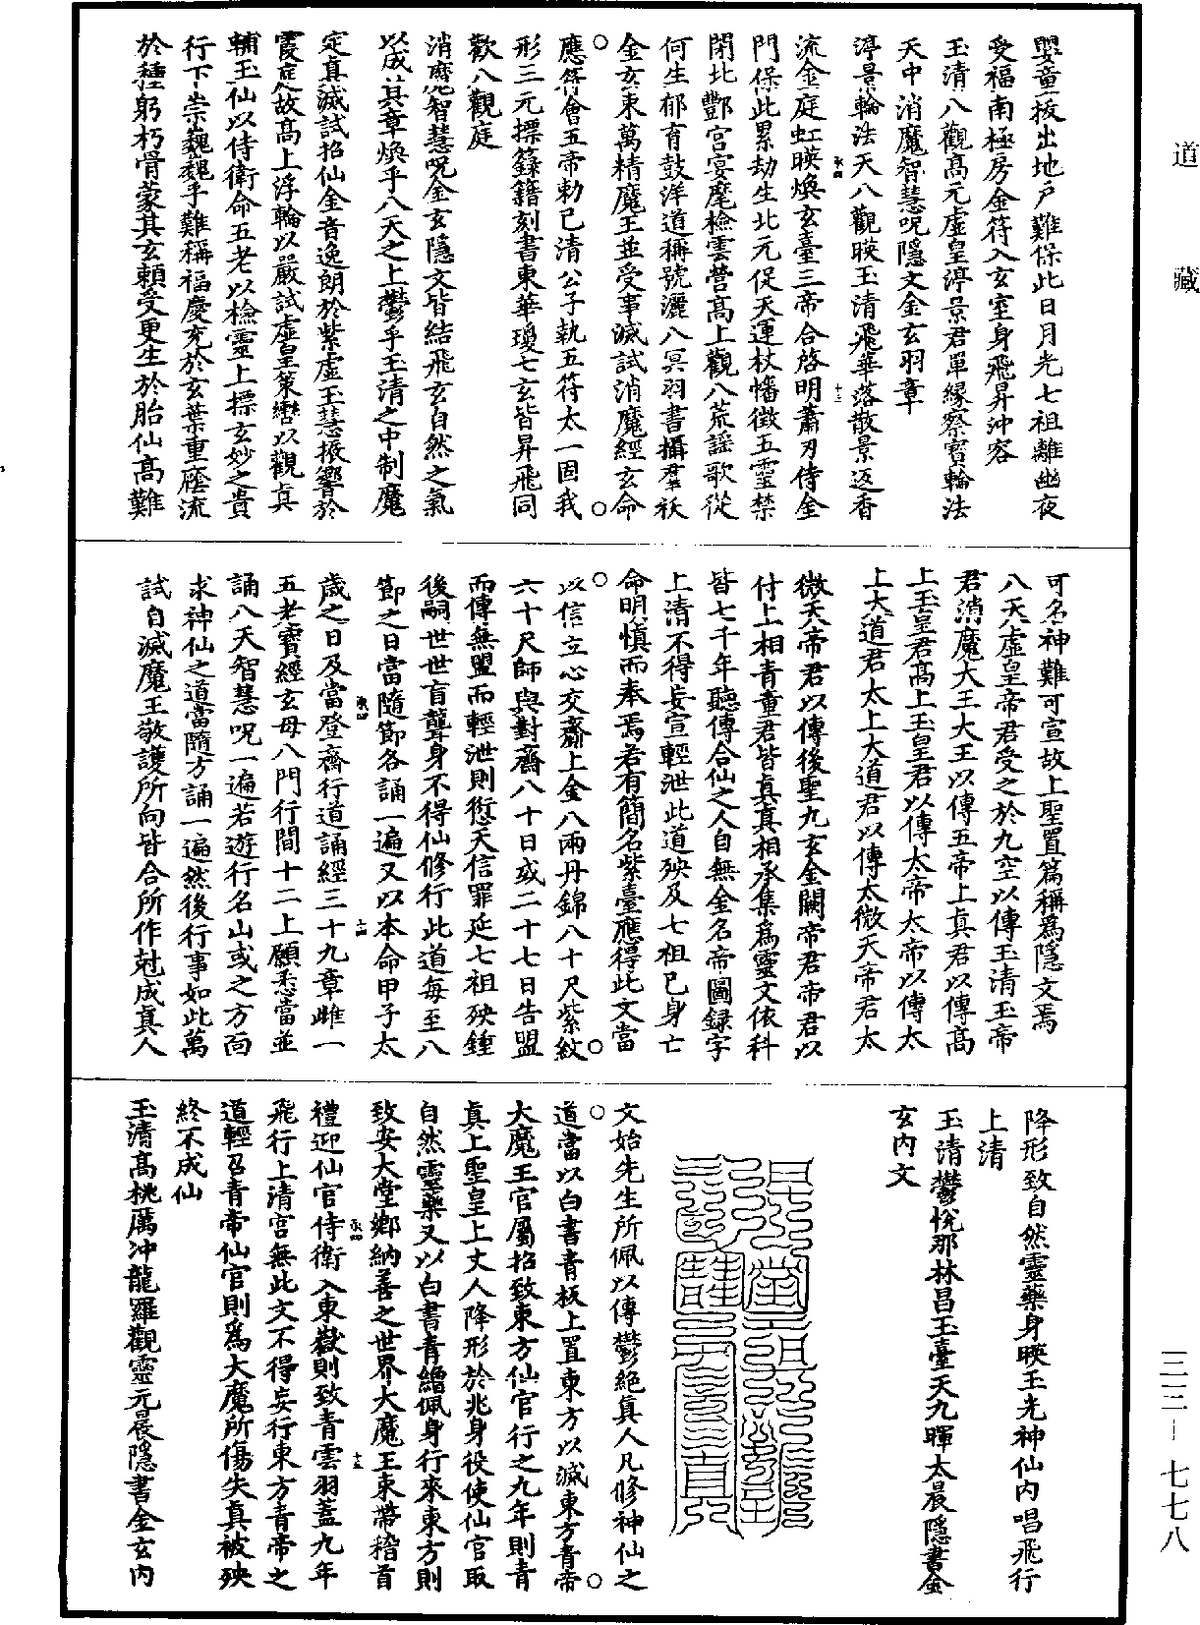 道藏
嬰童拔出地戶難保此日月光七祖離幽夜
受福南極房金符入玄室身飛昇沖容
玉清八觀高元虛皇渟景君單緣察寶輪法
天中消魔智慧呪隱文金玄羽章
渟景輪法天八觀暎玉清飛華落散景返香
流金庭虹暎煥玄臺三帝合啓明蕭刃侍金
門保此累劫生北元促天運杖幡徵五靈禁
閉北酆宮宴麾檢雲營高上觀八荒謡歌從
何生郁育鼓洋道稱號灑八冥羽書攝羣祅
金玄束萬精魔王並受事滅試消魔經玄命
應符會五帝勅已清公子執五符太一固我
形三元摽籙籍刻書東華瓊七玄皆昇飛同
歡八觀庭
消魔智慧呪金玄隱文皆結飛玄自然之氣
以成其章煥乎八天之上鬱乎玉清之中制魔
定真滅試招仙金音逸朗於紫虛玉慧掀響於
霞庭故高上浮輪以嚴試虛皇策轡以觀真
輔玉仙以侍衛命五老以檢靈上摽玄妙之貴
行下崇巍巍乎難稱福慶充於玄葉重廕流
於種躬朽骨蒙其玄頼受更生於胎仙高難
可名神難可宣故上聖置篇稱爲隱文焉
八天虛皇帝君受之於九空以傳玉清玉帝
君消魔大王大王以傳五帝上真君以傳高
上玉皇君高上玉皇君以傳太帝太帝以傳太
上大道君太上大道君以傳太微天帝君太
微天帝君以傳後聖九玄金闕帝君帝君以
付上相青童君皆真真相承集爲靈文依科
皆七千年聽傳合仙之人自無金名帝圖録字
上清不得妄宣輕泄此道殃及七祖已身亡
命明慎而奉焉若有簡名紫臺應得此文當
以信立心交齋上金八兩丹錦八十尺紫紋
六十尺師與對齋八十日或二十七日告盟
而傳無盟而輕泄則愆天信罪延七祖殃鍾
後嗣世世盲聾身不得仙修行此道每至八
節之日當隨節各誦一遍又以本命甲子太
歲之日及當登齋行道誦經三十九章雌一
五老寶經玄母八門行間十二上願悉當並
誦八天智慧呪一遍若遊行名山或之方面
求神仙之道當隨方誦一遍然後行事如此萬
試自滅魔王敬護所向皆合所作尅成真人
降形致自然靈藥身暎玉光神仙内唱飛行
上清
玉清鬱悅那林昌玉臺天九暉太晨隱書金
玄内文
文始先生所佩以傳鬱絶真人凡修神仙之
道當以白書青板上置東方以滅東方青帝
大魔王官屬招致東方仙官行之九年則青
真上聖皇上丈人降形於兆身役使仙官取
自然靈藥又以白書青繒佩身行來東方則
致安大堂鄉納善之世界大魔王束帶稽首
禮迎仙官侍衛入東嶽則致青雲羽蓋九年
飛行上清宮無此文不得妄行東方青帝之
道輕召青帝仙官則爲大魔所傷失真被殃
終不成仙
玉清高桃厲沖龍羅觀靈元晨隱書金玄内
三三—七七八